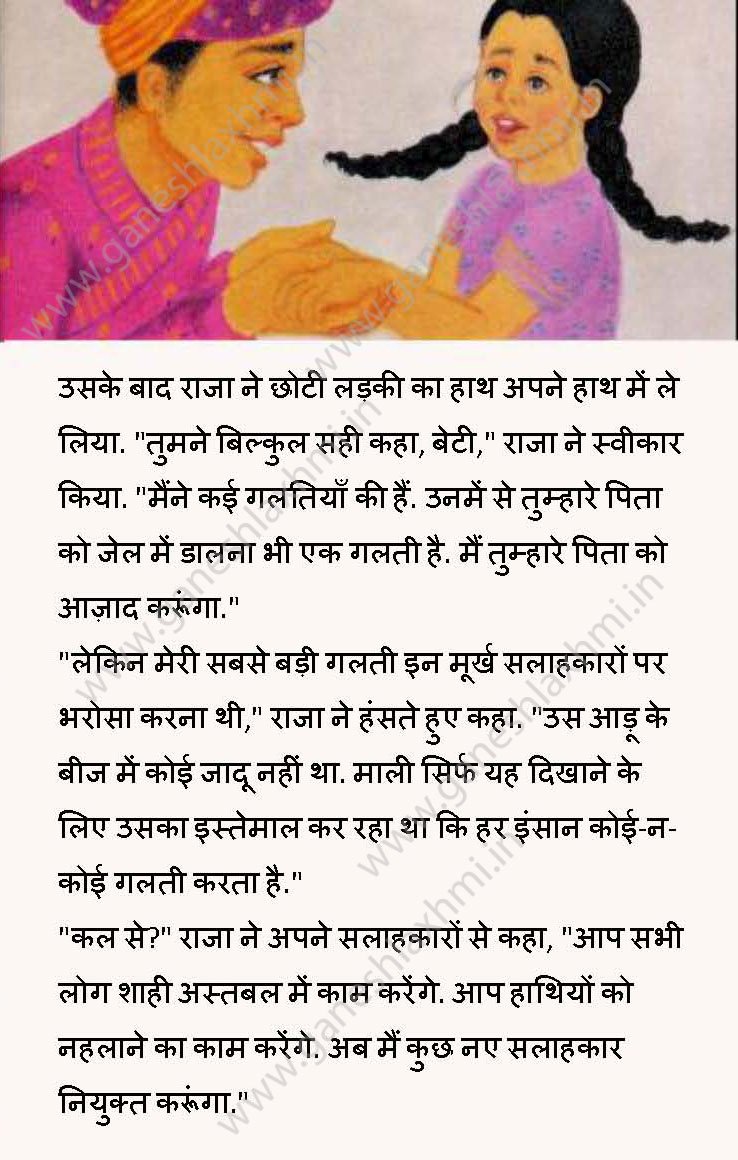 उसके बाद राजा ने छोटी लड़की का हाथ अपने हाथ में ले
लिया. "तुमने बिल्कुल सही कहा, बेटी," राजा ने स्वीकार
किया. "मैंने कई गलतियाँ की हैं. उनमें से तुम्हारे पिता
को जेल में डालना भी एक गलती है. मैं तुम्हारे पिता को
आज़ाद करूंगा."
"लेकिन मेरी सबसे बड़ी गलती इन मूर्ख सलाहकारों पर
भरोसा करना थी," राजा ने हंसते हुए कहा. "उस आड़ू के
बीज में कोई जादू नहीं था. माली सिर्फ यह दिखाने के
लिए उसका इस्तेमाल कर रहा था कि हर इंसान कोई-न-
कोई गलती करता है."
"कल से?" राजा ने अपने सलाहकारों से कहा, "आप सभी
लोग शाही अस्तबल में काम करेंगे. आप हाथियों को
नहलाने का काम करेंगे. अब मैं कुछ नए सलाहकार
नियुक्त करूंगा."
www.ganeshlaxhmi.in
www.ganeshlaxhmi.in
www.ganeshlaxhmi.in
www.ganeshlaxhmi.in
www.ganeshlaxhmi.in